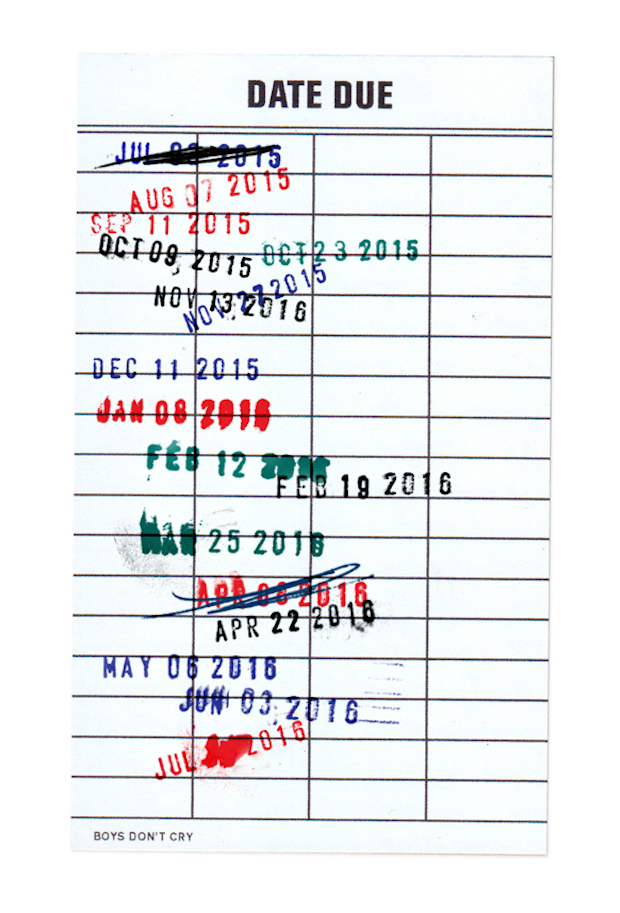 DATE DUE
JUL 03 2015
AUG 07 2015
SEP 11 2015
OCT 09, 2015
OCT 23 2015
NOV 27 2015
NOV 13, 2016
DEC 11 2015
JAN 08 2016
FEB 12 2016
FEB 19 2016
MAR 25 2016
APR 2016
APR 22 2016
MAY 06 2016
JUN 03, 2016
JUL 2016
BOYS DON'T CRY